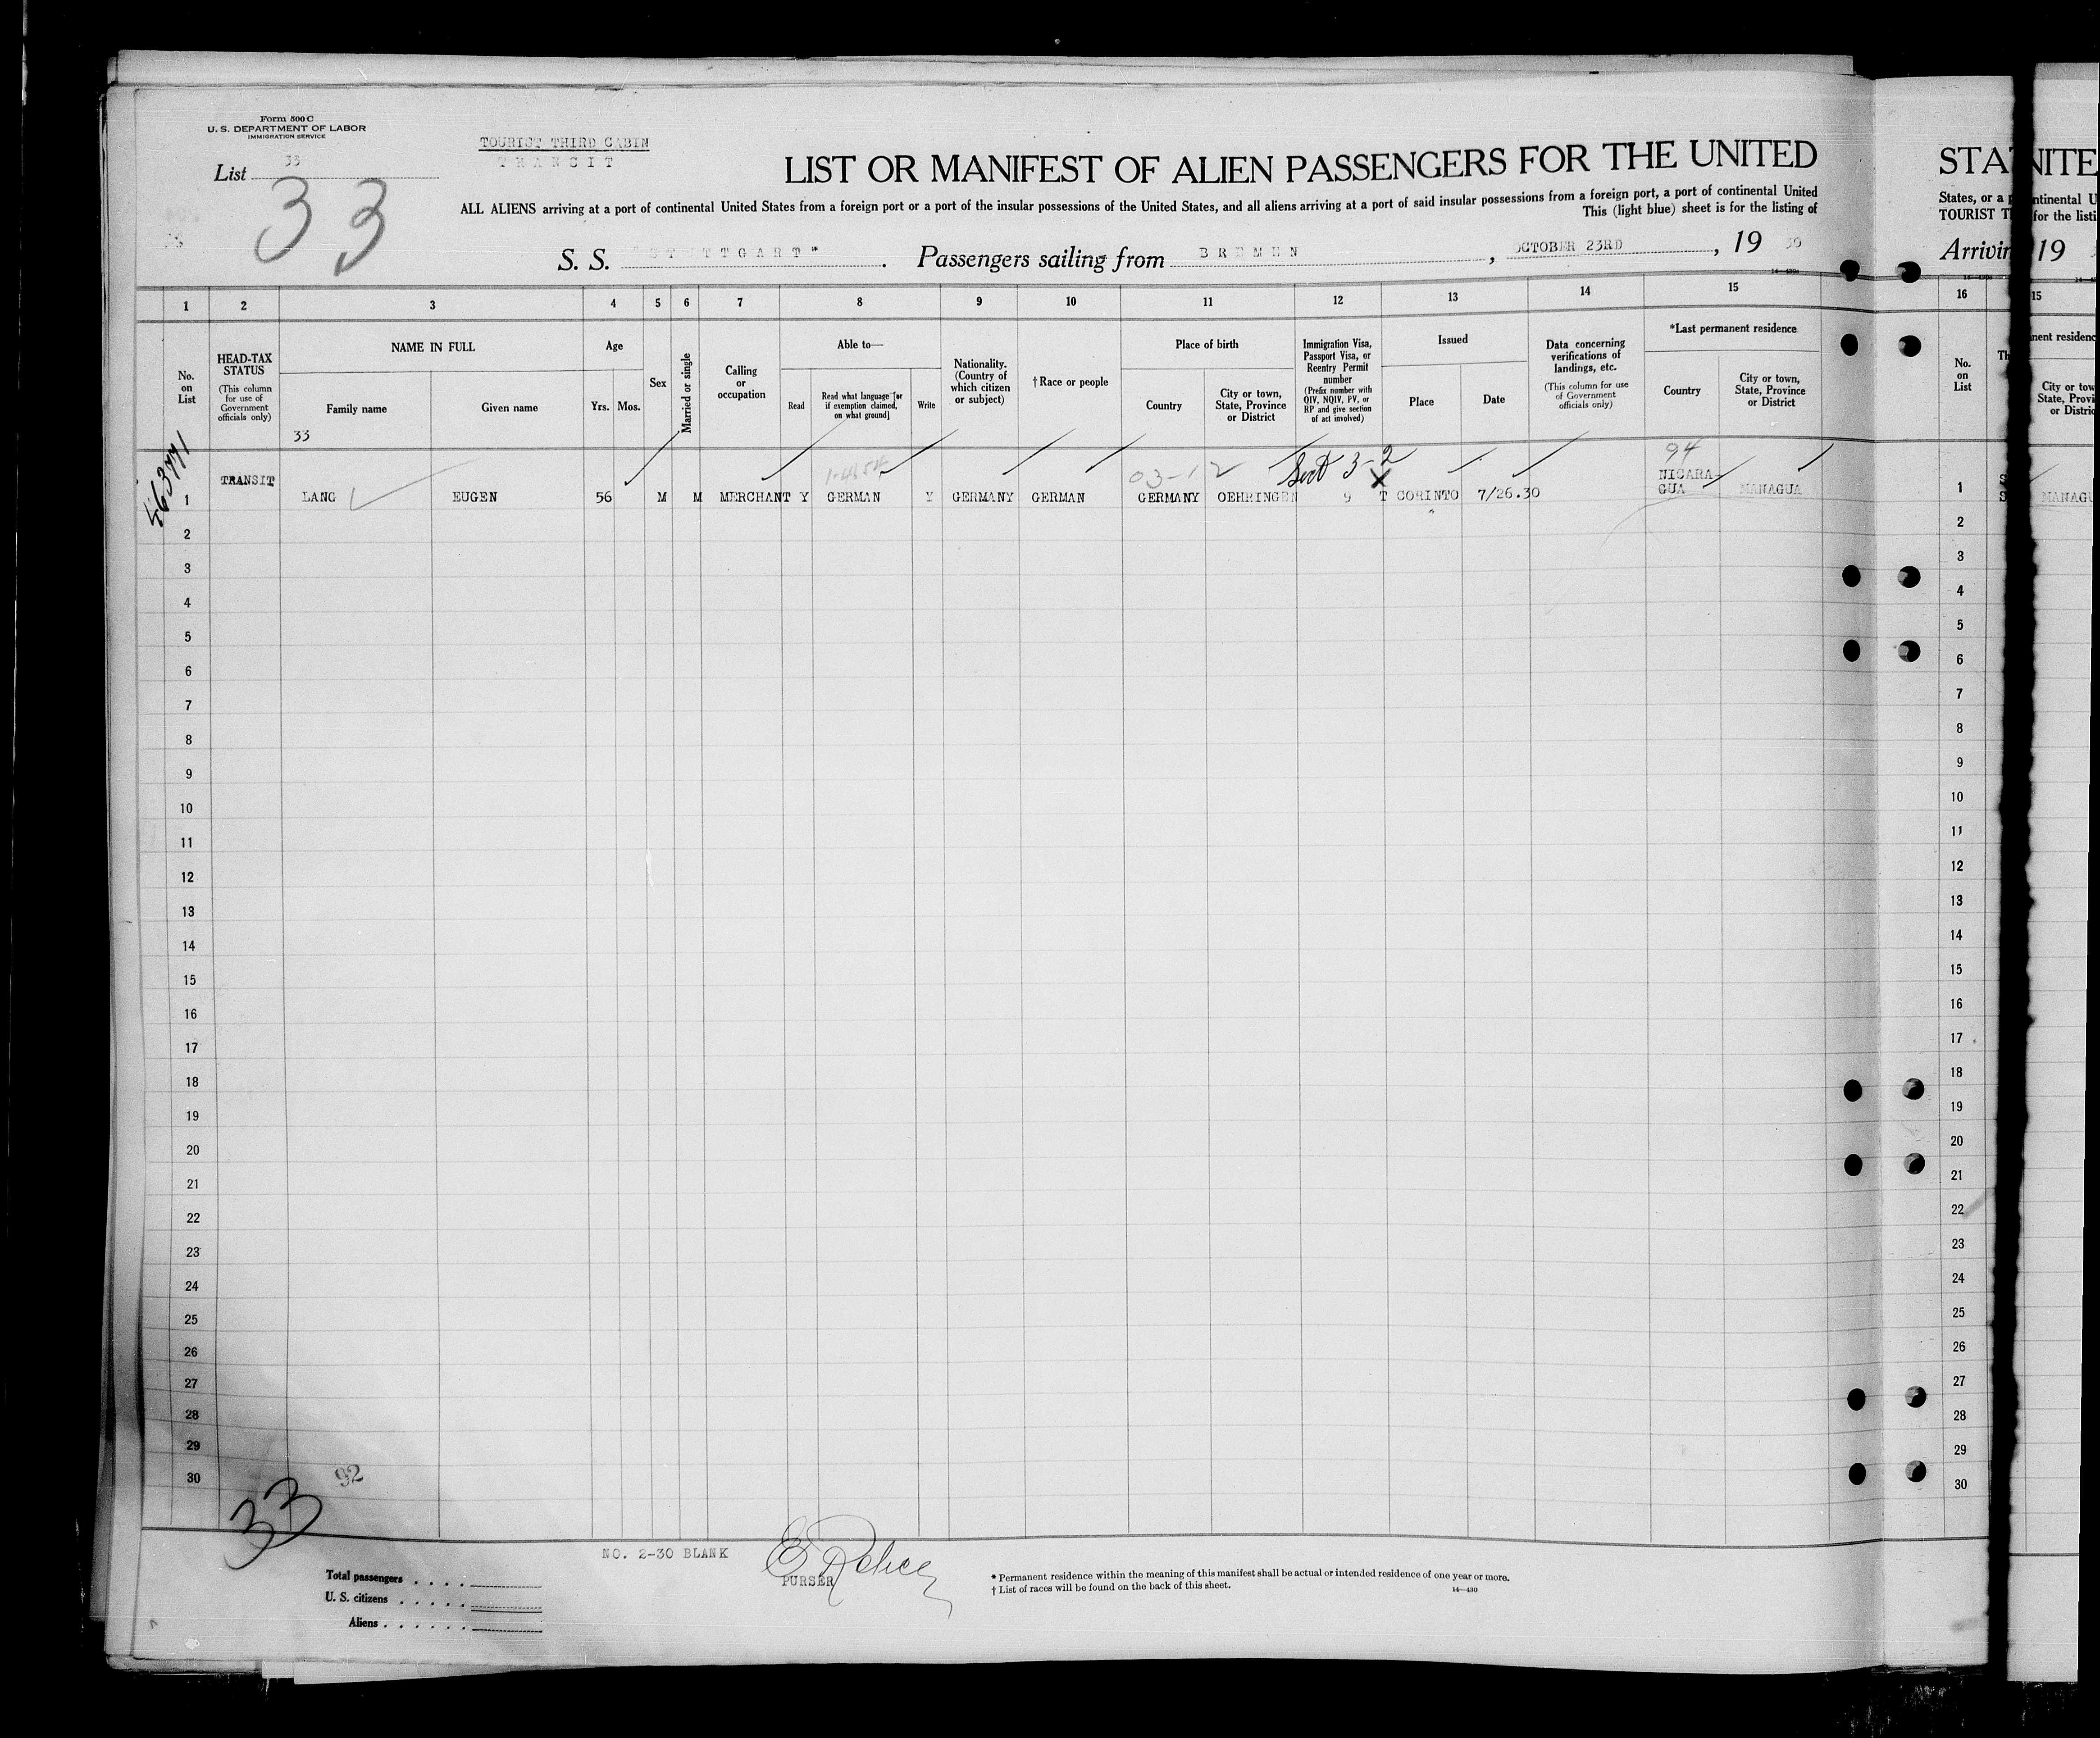 Form 500 C
U. S. DEPARTMENT OF LABOR
IMMIGRATION SERVICE
List 33
33
TOURIST THIRD CABIN
TRANSIT
LIST OR MANIFEST OF ALIEN PASSENGERS FOR THE UNITED
ALL ALIENS arriving at a port of continental United States from a foreign port or a port of the insular possessions of the United States, and all aliens arriving at a port of said insular possessions from a foreign port, a port of continental United
This (light blue) sheet is for the listing of
S. S. STUTTGART" . Passengers sailing from BREMEN , OCTOBER 23RD , 19 30
1 2 3 4 5 6 7 8 9 10 11 12 13 14 15
No. on List
HEAD-TAX STATUS
(This column for use of Government officials only)
NAME IN FULL
Family name
Given name
Age
Yrs. Mos.
Sex
Married or single
Calling or occupation
Able to—
Read
Read what language [or if exemption claimed, on what ground]
Write
Nationality. (Country of which citizen or subject)
†Race or people
Place of birth
Country
City or town, State, Province or District
Immigration Visa, Passport Visa, or Reentry Permit number
(Prefix number with QIV, NQIV, PV, or RP and give section of act involved)
Issued
Place
Date
Data concerning verifications of landings, etc.
(This column for use of Government officials only)
*Last permanent residence
Country
City or town, State, Province or District
33
46377/
03-12 Sect 3-2 X 94
1 TRANSIT LANG EUGEN 56 M M MERCHANT Y GERMAN Y GERMANY GERMAN GERMANY OEHRINGEN 9 T CORINTO 7/26.30 NICARA-GUA MANAGUA
2
3
4
5
6
7
8
9
10
11
12
13
14
15
16
17
18
19
20
21
22
23
24
25
26
27
28
29
30
92
33
NO. 2-30 BLANK
PURSER
Total passengers . . . .
U. S. citizens . . . . .
Aliens . . . . . .
* Permanent residence within the meaning of this manifest shall be actual or intended residence of one year or more.
† List of races will be found on the back of this sheet.
14—430
STA
States, or a p
TOURIST T
Arrivin
16
No. on List
Th
1
2
3
4
5
6
7
8
9
10
11
12
13
14
15
16
17
18
19
20
21
22
23
24
25
26
27
28
29
30
NITE
ntinental U
for the listi
19
15
nent residenc
City or tow
State, Provi
or Distric
MANAGU